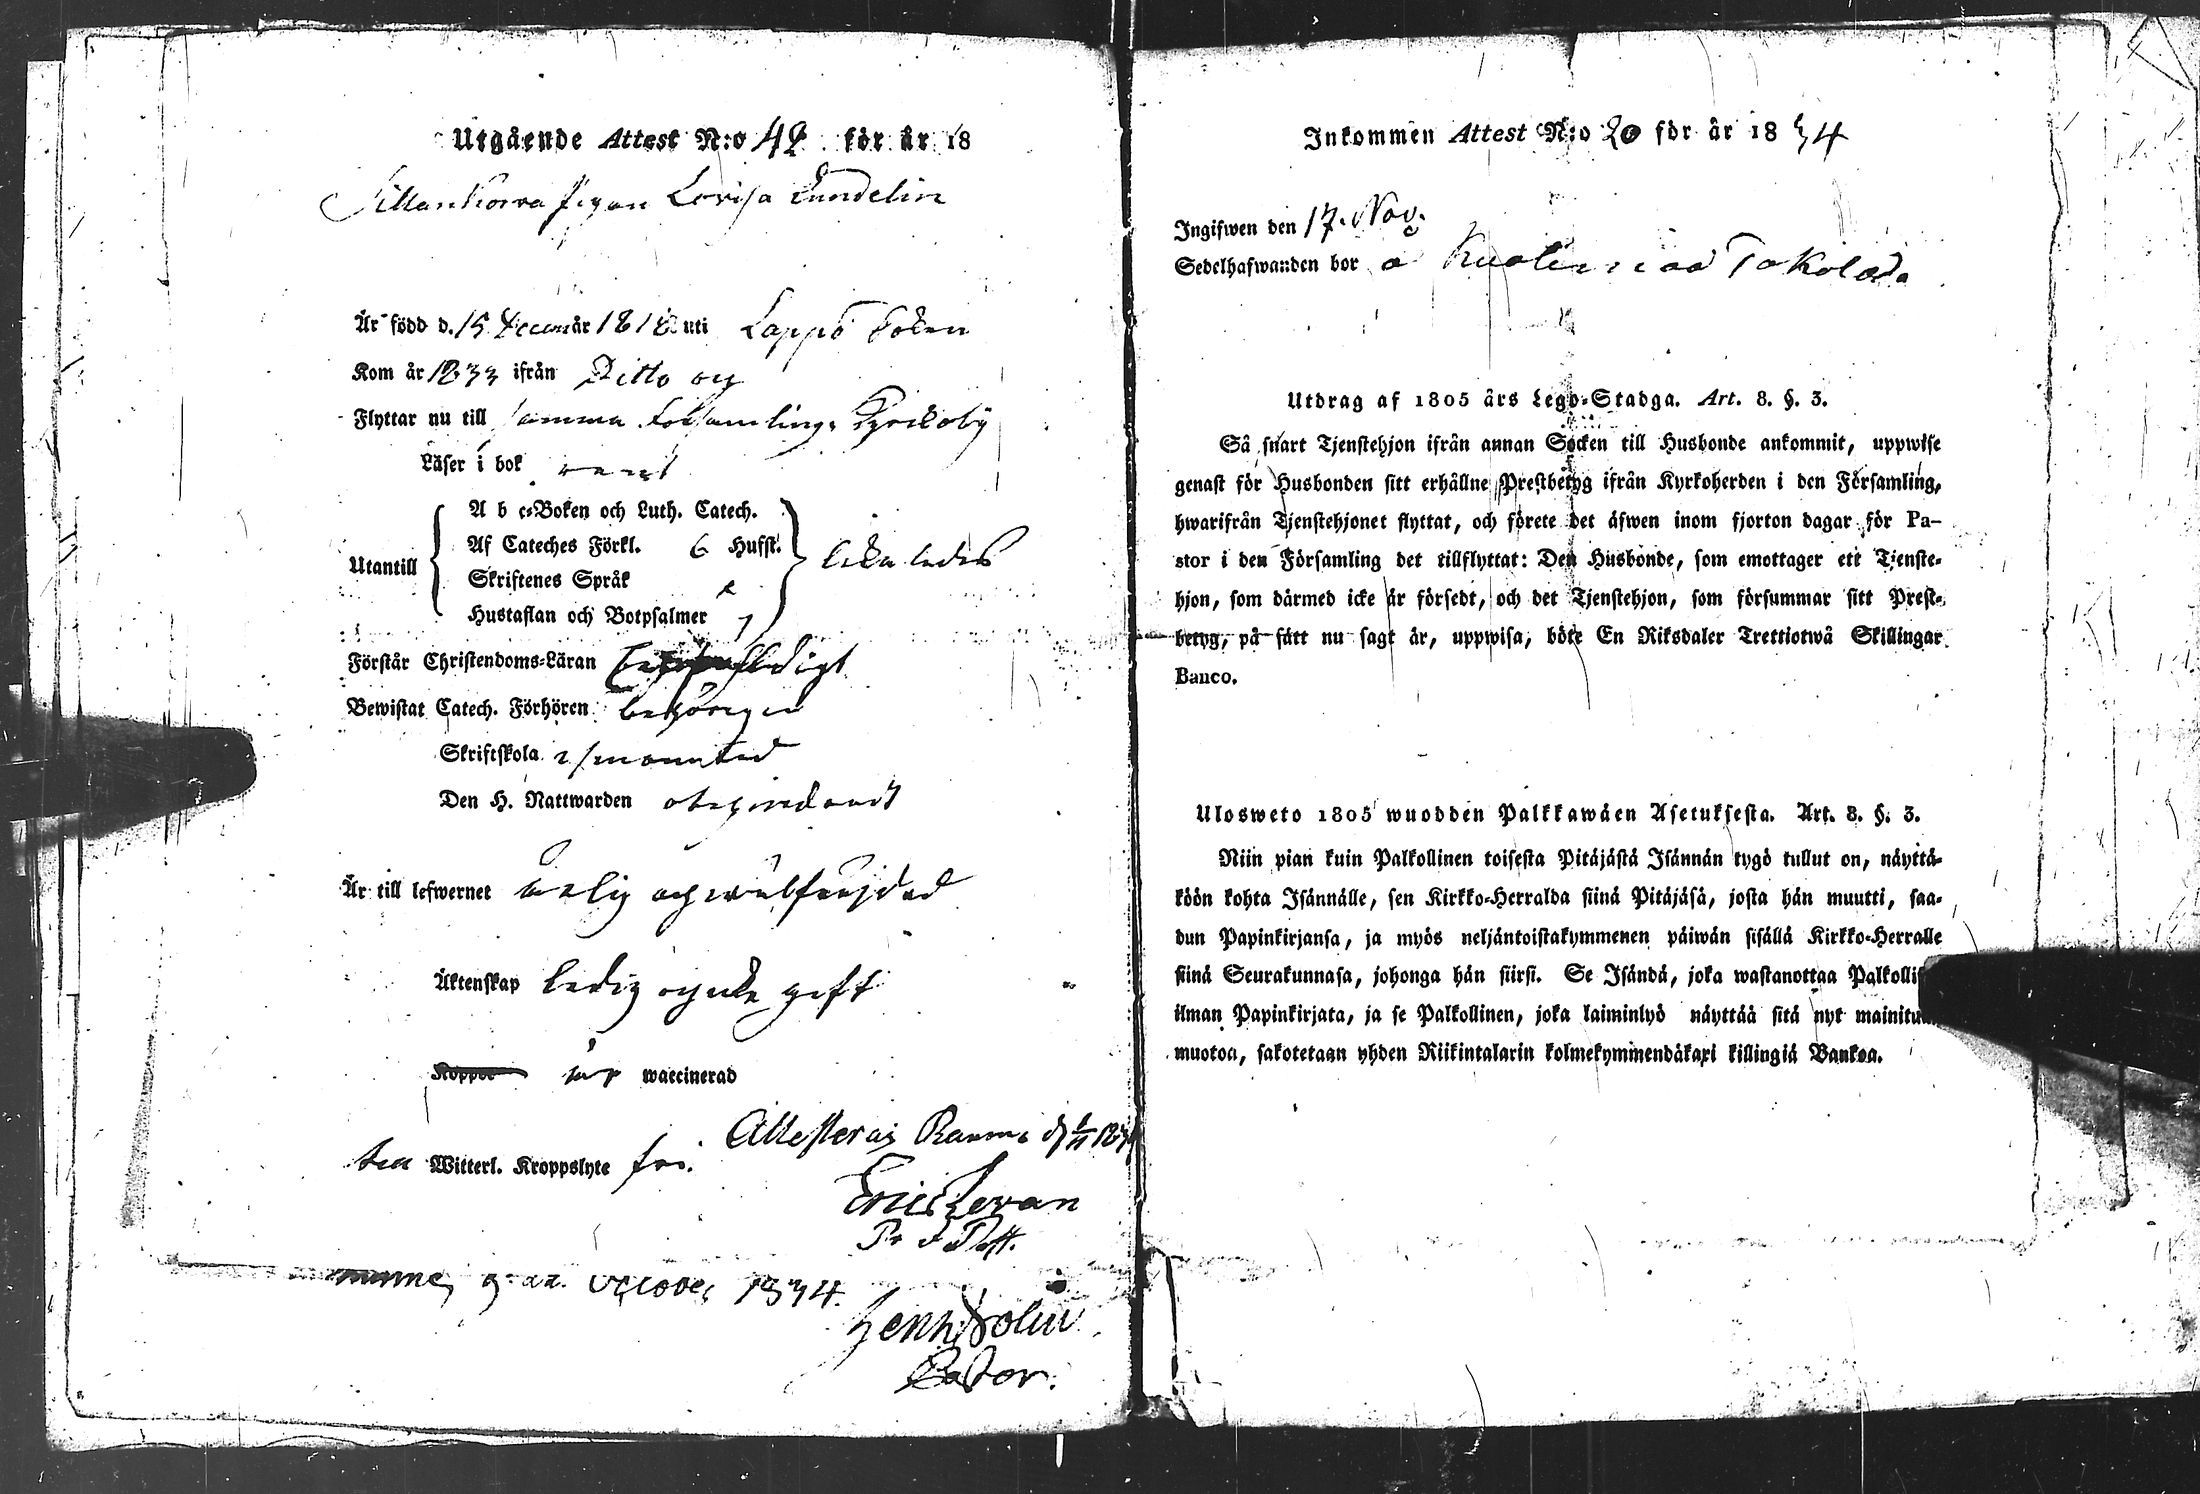 Utgående Attest N:o 42 för år 18
pigan Lovisa Lundelin
Är född d. 15 Decem år 1818 uti Lappo Soken
Kom år 1833 ifrån Ditto och
Flyttar nu till samma Församlings Kyrckoby
Läser i bok rent
Utantill
A b c-Boken och Luth. Catech.
Af Cateches Förkl. 6 Hufst. lika ledes
Skriftenes Språk
Hustaflan och Botpsalmer
Förstår Christendoms-Läran
Bewistat Catech. Förhören behörigen
Skriftskola
Den H. Nattwarden obehindradt
Är till lefwernet ärlig och wälfräjdad
Äktenskap ledig och icke gift
Koppor är waccinerad
Witterl. Kroppslyte fri.
Attesteras Raumo d.
Eric Levan
g. 22. October 1834.
Pastor.
Inkommen Attest N:o 20 för år 1834
Ingifwen den 17. Nov.
Sedelhafwanden bor
Utdrag af 1805 års Lego-Stadga. Art. 8. §. 3.
Så snart Tjenstehjon ifrån annan Socken till Husbonde ankommit, uppwise
genast för Husbonden sitt erhållne Prestbetyg ifrån Kyrkoherden i den Församling,
hwarifrån Tjenstehjonet flyttat, och förete det äfwen inom fjorton dagar för Pa-
stor i den Församling det tillflyttat: Den Husbonde, som emottager ett Tjenste-
hjon, som därmed icke är försedt, och det Tjenstehjon, som försummar sitt Prest-
betyg, på sätt nu sagt är, uppwisa, böte En Riksdaler Trettiotwå Skillingar
Banco.
Ulosweto 1805 wuodden Palkkawäen Asetuksesta. Art. 8. §. 3.
Niin pian kuin Palkollinen toisesta Pitäjästä Isännän tygö tullut on, näyttä-
köön kohta Isännälle, sen Kirkko-Herralda siinä Pitäjäsä, josta hän muutti, saa-
dun Papinkirjansa, ja myös neljäntoistakymmenen päiwän sisällä Kirkko-Herralle
siinä Seurakunnasa, johonga hän siirsi. Se Isändä, joka wastanottaa
ilman Papinkirjata, ja se Palkollinen, joka laiminlyö näyttää sitä nyt
muotoa, sakotetaan yhden Riikintalarin kolmekymmendäkaxi killingiä Bankoa.